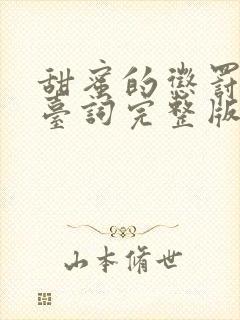 甜蜜的懲罰
臺詞完整版
山本脩世